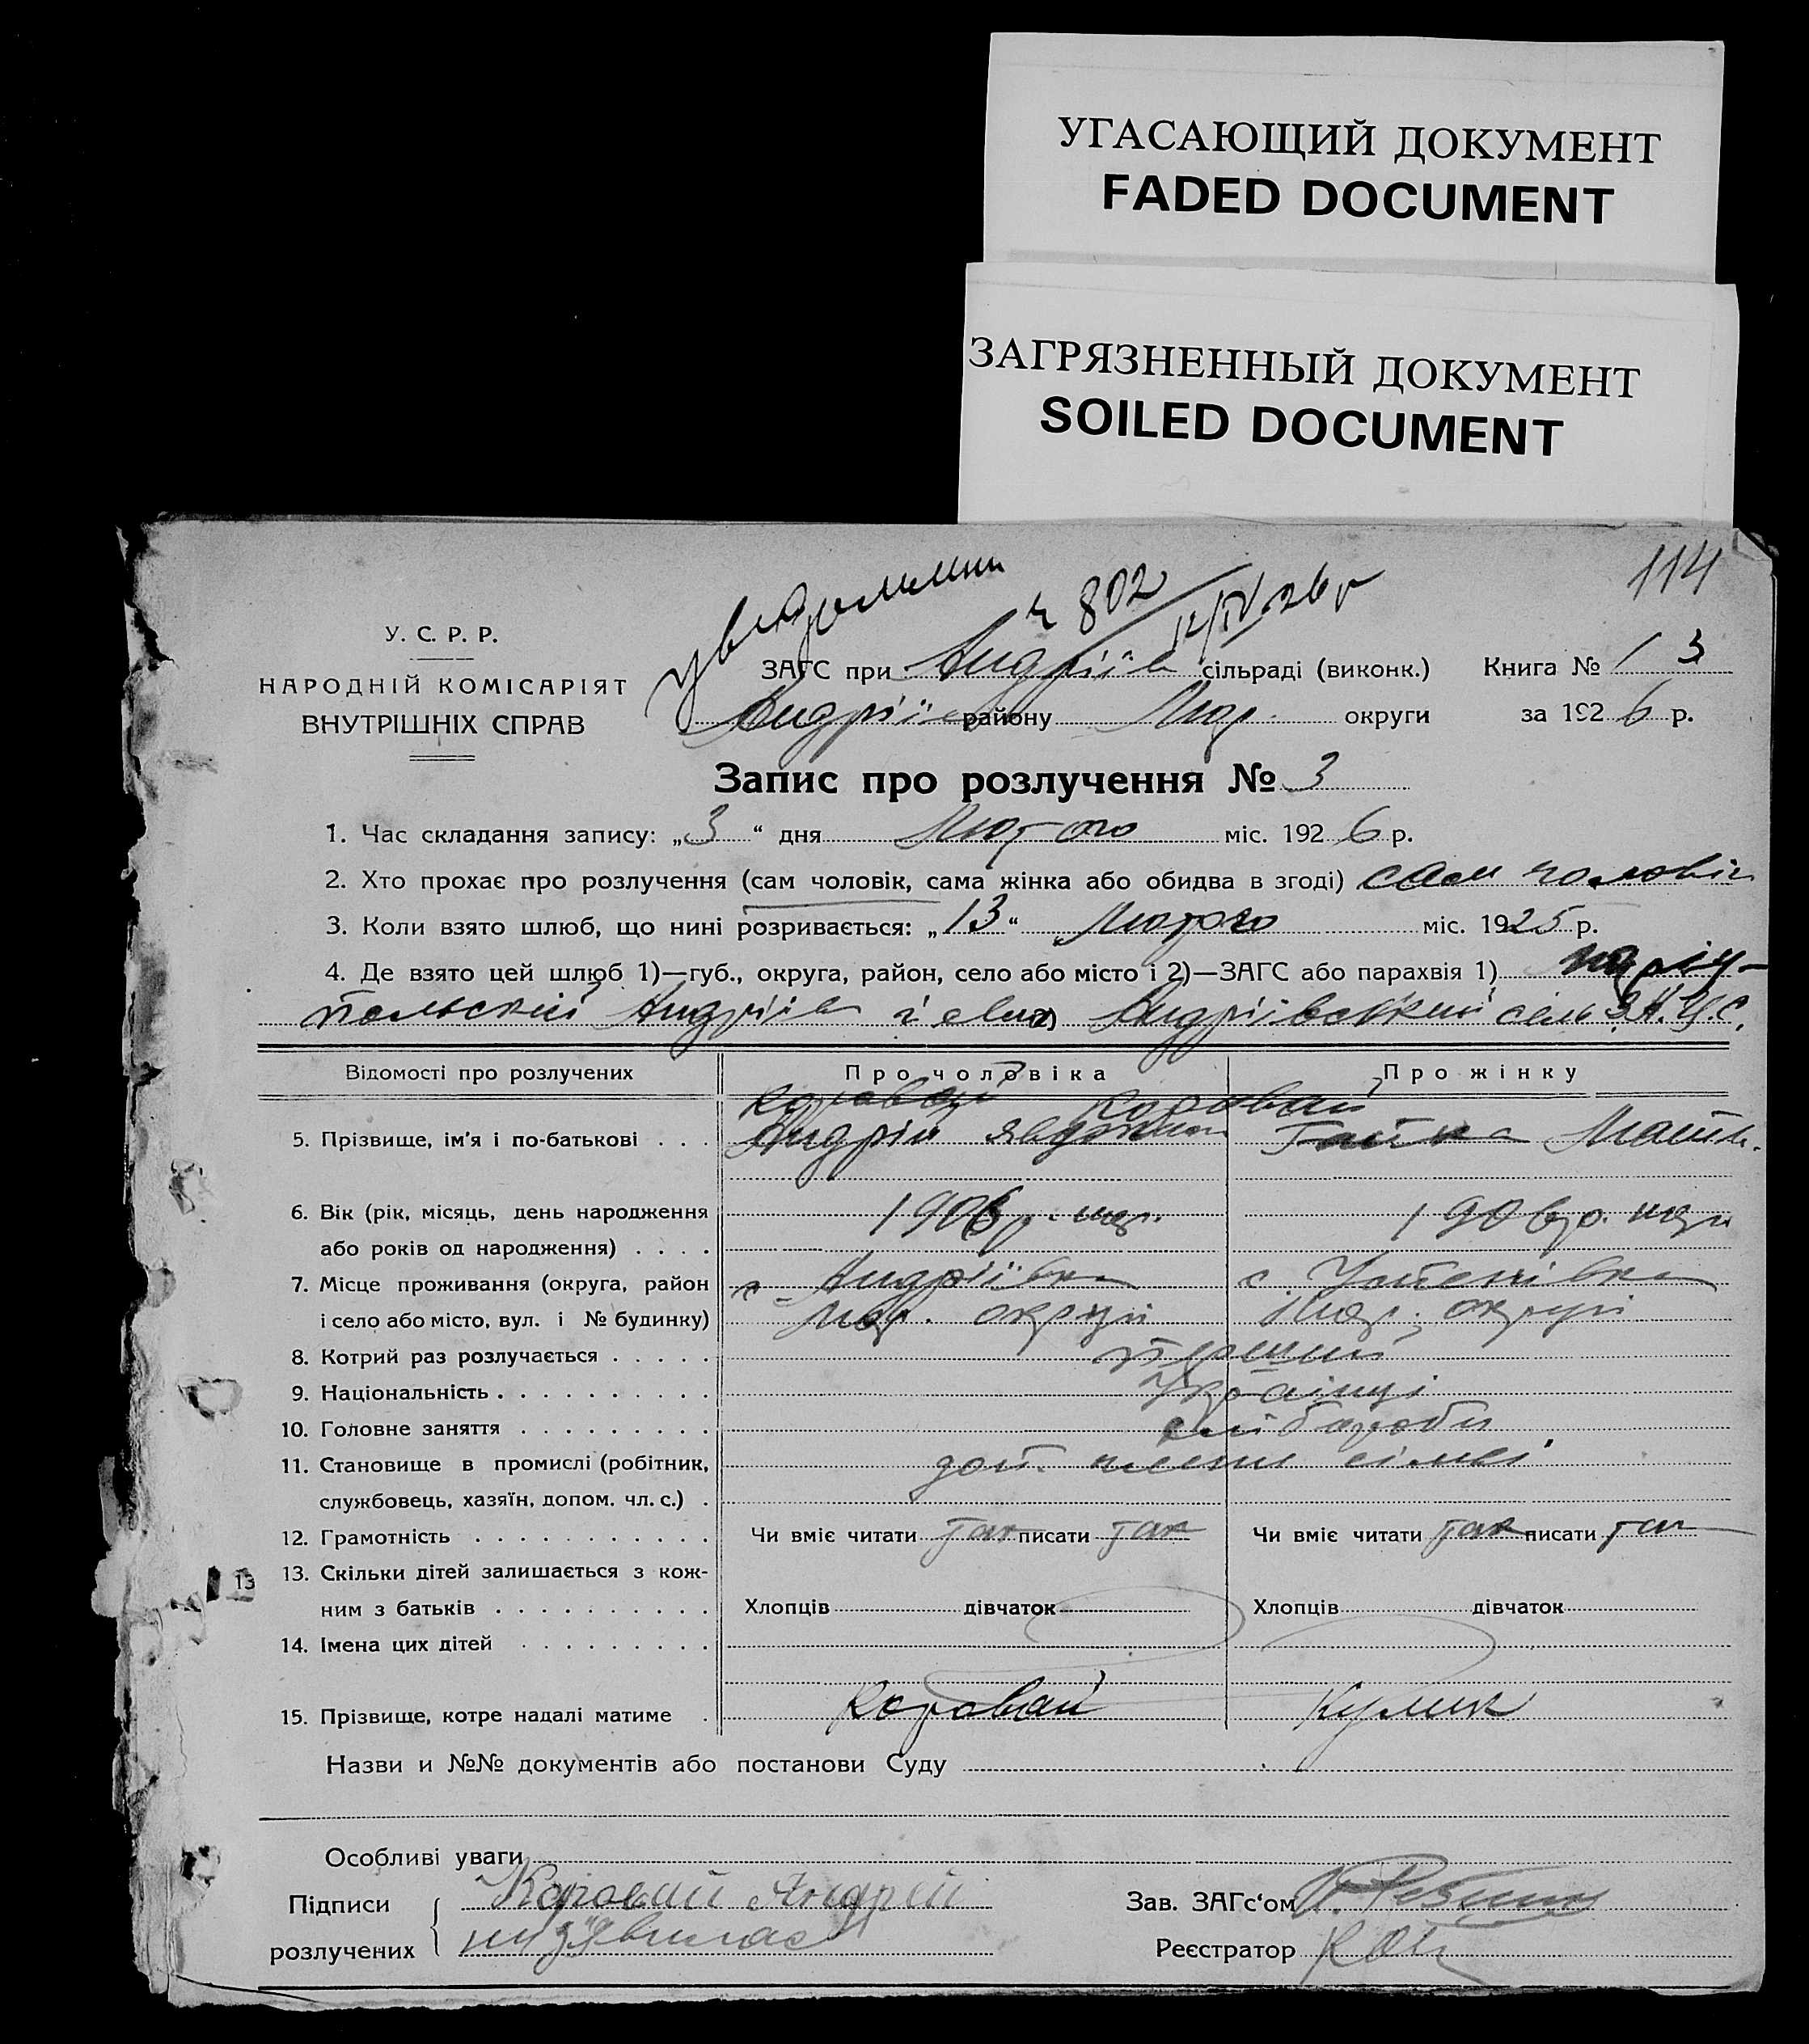 УГАСАЮЩИЙ ДОКУМЕНТ
FADED DOCUMENT
ЗАГРЯЗНЕННЫЙ ДОКУМЕНТ
SOILED DOCUMENT
114
ч 802
12/IV 26 г
У. С. Р. Р.
НАРОДНІЙ КОМІСАРІЯТ
ВНУТРІШНІХ СПРАВ
ЗАГС при Андріїв сільраді (виконк.) Книга № 1 3
Андріїв району Мар. округи за 1926 р.
Запис про розлучення № 3
1. Час складання запису: „3“ дня Лютого міс. 1926 р.
2. Хто прохає про розлучення (сам чоловік, сама жінка або обидва в згоді) сам чоловік
3. Коли взято шлюб, що нині розривається: „13“ Лютого міс. 1925 р.
4. Де взято цей шлюб 1)—губ., округа, район, село або місто і 2)—ЗАГС або парахвія 1) Маріу-
польскій Андріїв 2) Андріївський сель З.А.Г.С.
Відомості про розлучених Про чоловіка Про жінку
Коровай Коровай
5. Прізвище, ім'я і по-батькові . . . Андрій Гапка
6. Вік (рік, місяць, день народження 1906 р. нар. 1906 р. нар
або років од народження) . . . .
7. Місце проживання (округа, район с Андріївка с
і село або місто, вул. і № будинку) Мар. округи Мар. округи
8. Котрий раз розлучається . . . . . перший
9. Національність . . . . . . . . . . Українці
10. Головне заняття . . . . . . . . . хліборобы
11. Становище в промислі (робітник, доп. члени сімьі
службовець, хазяїн, допом. чл. с.) .
12. Грамотність . . . . . . . . . . . Чи вміє читати так писати так Чи вміє читати так писати так
13
13. Скільки дітей залишається з кож-
ним з батьків . . . . . . . . . . Хлопців дівчаток Хлопців дівчаток
14. Імена цих дітей . . . . . . . . .
15. Прізвище, котре надалі матиме . Коровай Кулик
Назви и №№ документів або постанови Суду
Особливі уваги
Підписи Коровай Андрей Зав. ЗАГс‘ом
розлучених Реєстратор